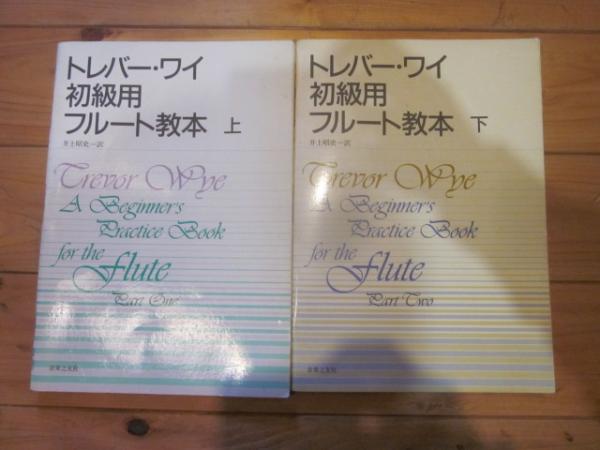 トレバー・ワイ
初級用
フルート教本 上
井上昭史一訳
Trevor Wye
A Beginner's
Practice Book
for the
flute
Part One
音楽之友社
トレバー・ワイ
初級用
フルート教本 下
井上昭史一訳
Trevor Wye
A Beginner's
Practice Book
for the
flute
Part Two
音楽之友社